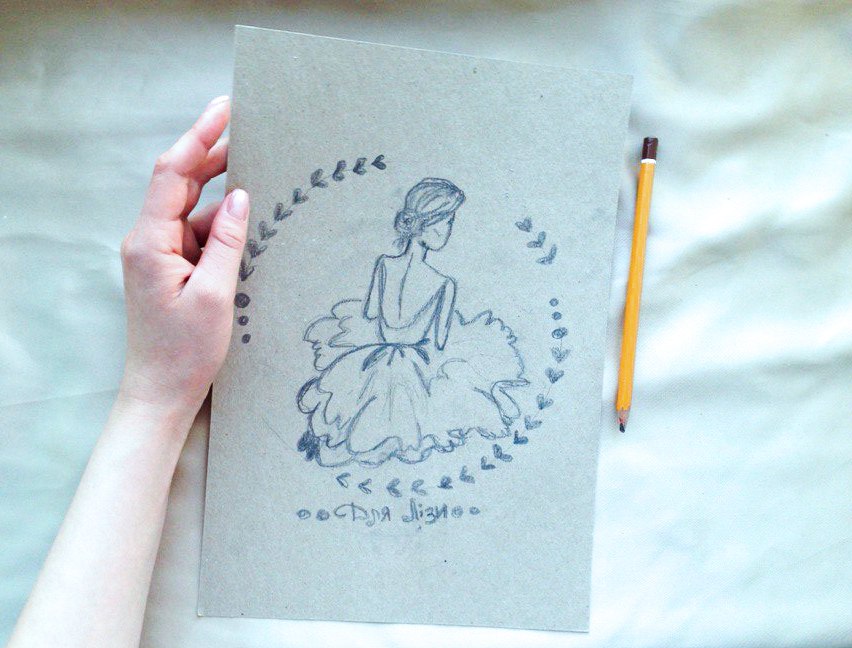 Для Лізи